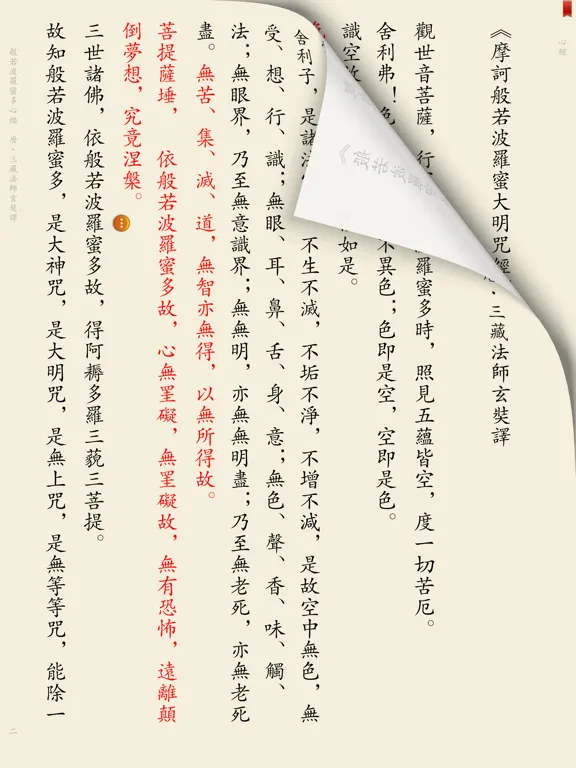 心經
《摩訶般若波羅蜜大明咒經 · 三藏法師玄奘譯
觀世音菩薩,行 羅蜜多時,照見五蘊皆空,度一切苦厄。
舍利弗!色 不異色;色即是空,空即是色。
識空故 如是。
舍利子,是諸法 不生不滅,不垢不淨,不增不減,是故空中無色,無
受、想、行、識;無眼、耳、鼻、舌、身、意;無色、聲、香、味、觸、
法;無眼界,乃至無意識界;無無明,亦無無明盡;乃至無老死,亦無老死
盡。無苦、集、滅、道,無智亦無得,以無所得故。
菩提薩埵, 依般若波羅蜜多故,心無罣礙,無罣礙故,無有恐怖,遠離顛
倒夢想,究竟涅槃。
三世諸佛,依般若波羅蜜多故,得阿耨多羅三藐三菩提。
故知般若波羅蜜多,是大神咒,是大明咒,是無上咒,是無等等咒,能除一
般若波羅蜜多心經 唐·三藏法師玄奘譯
二